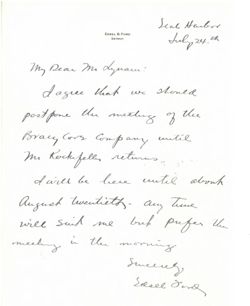 EDSEL B. FORD
DETROIT
Seal Harbor
July 24th
My Dear Mr Lynam:
I agree that we should
postpone the meeting of the
Bracy Cove Company until
Mr Rockefeller returns.
I will be here until about
August twentieth. Any time
will suit me but prefer the
meeting in the morning
Sincerely
Edsel Ford